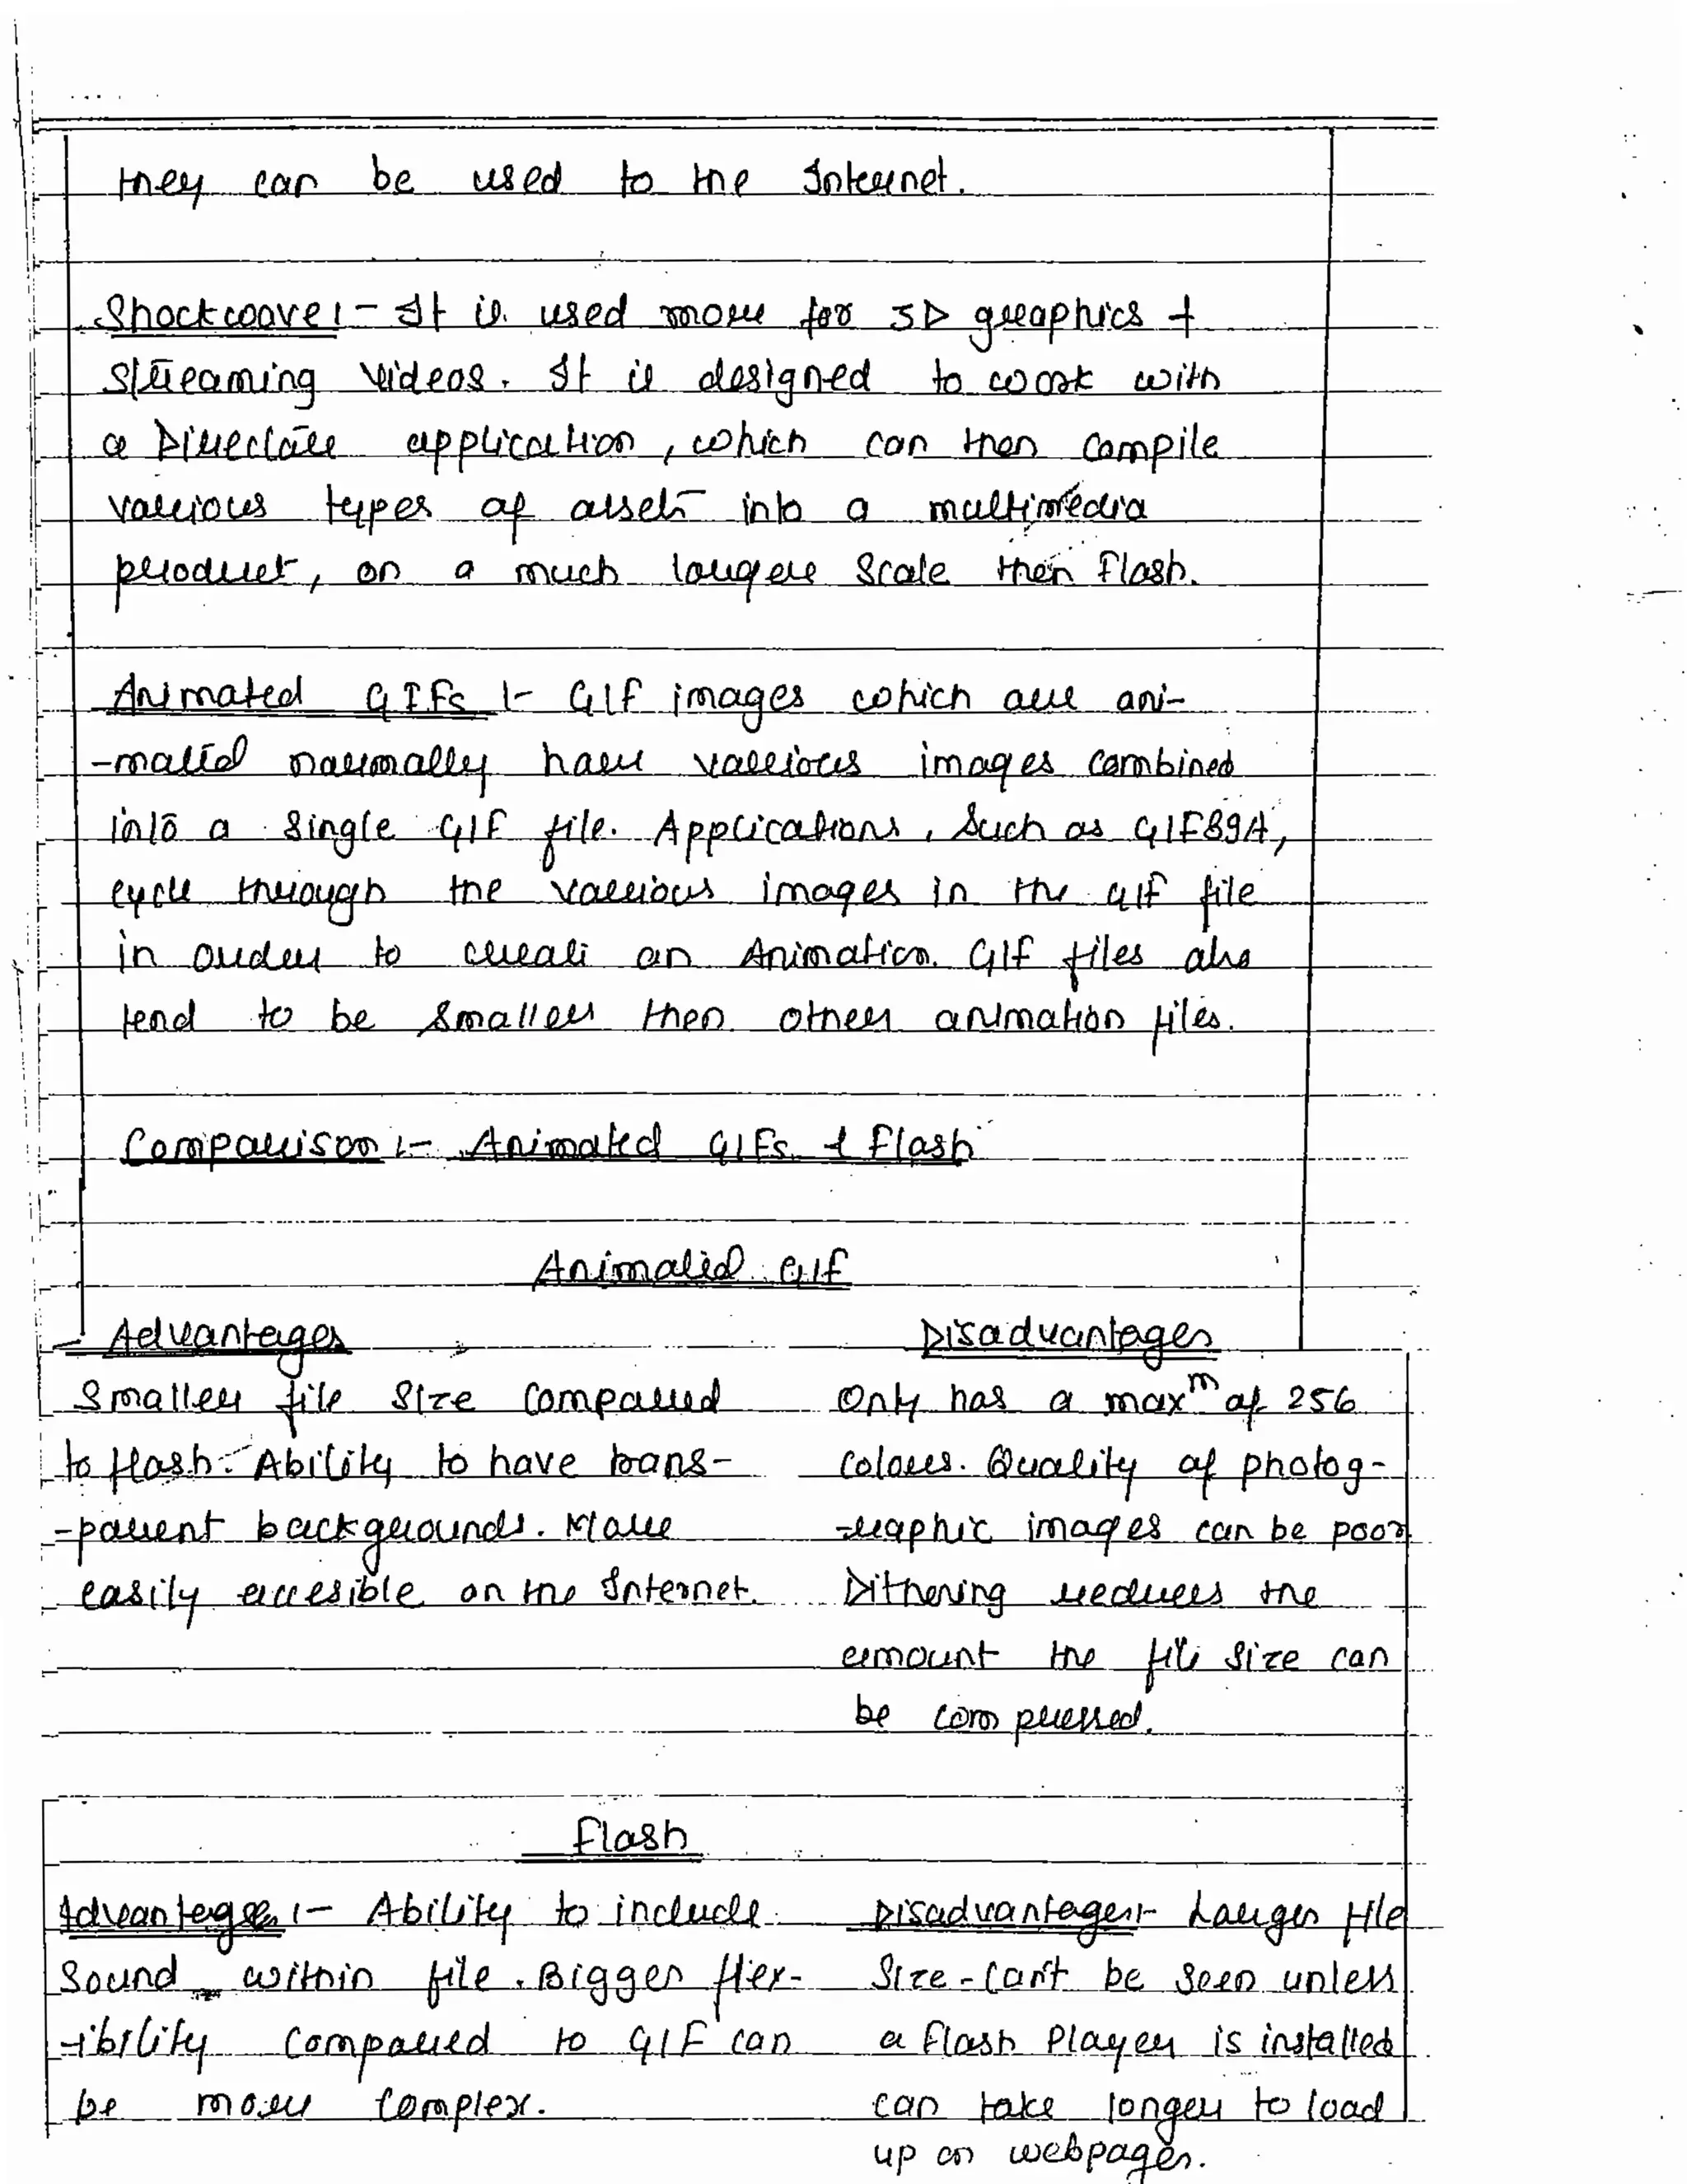 they can be used to the Internet.
Shockwave :- It is used more for 3D graphics &
streaming videos. It is designed to work with
a Director application, which can then compile
various types of assets into a multimedia
product, on a much larger scale then Flash.
Animated GIFs :- GIF images which are ani-
-mated normally have various images combined
into a single GIF file. Applications, such as GIF89A,
cycle through the various images in the GIF file
in order to create an Animation. GIF files also
tend to be smaller then other animation files.
Comparison :- Animated GIFs & Flash
Animated GIF
Advantages
Smaller file size compared
to flash. Ability to have trans-
-parent backgrounds. More
easily accesible on the Internet.
Disadvantages
Only has a maxm of 256
colours. Quality of photog-
-raphic images can be poor
Dithering reduces the
amount the file size can
be compressed.
Flash
Advantages :- Ability to include
Sound within file. Bigger flex-
-ibility compared to GIF can
be more complex.
Disadvantages :- Larger file
size - can't be seen unless
a flash Player is installed
can take longer to load
up on webpages.